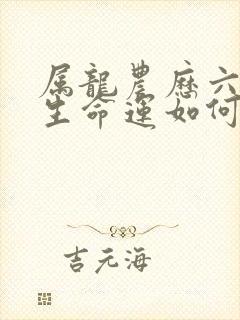 属龍農歷六
生命運如何
吉元海